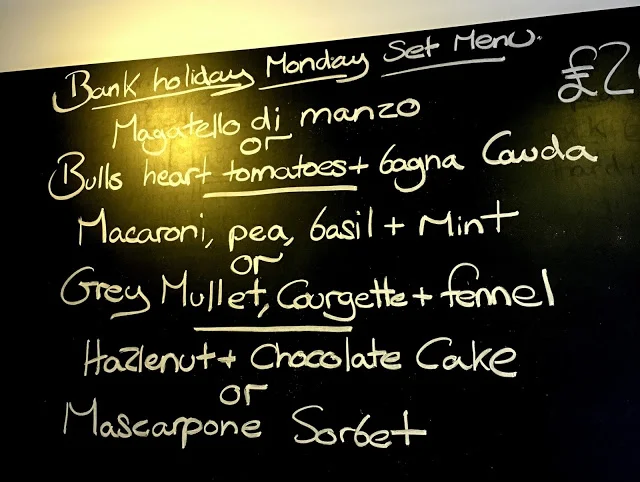 Bank holiday Monday Set Menu.
£2
Magatello di manzo
or
Bulls heart tomatoes + bagna Cauda
Macaroni, pea, basil + Mint
or
Grey Mullet, Courgette + fennel
Hazlenut + Chocolate Cake
or
Mascarpone Sorbet